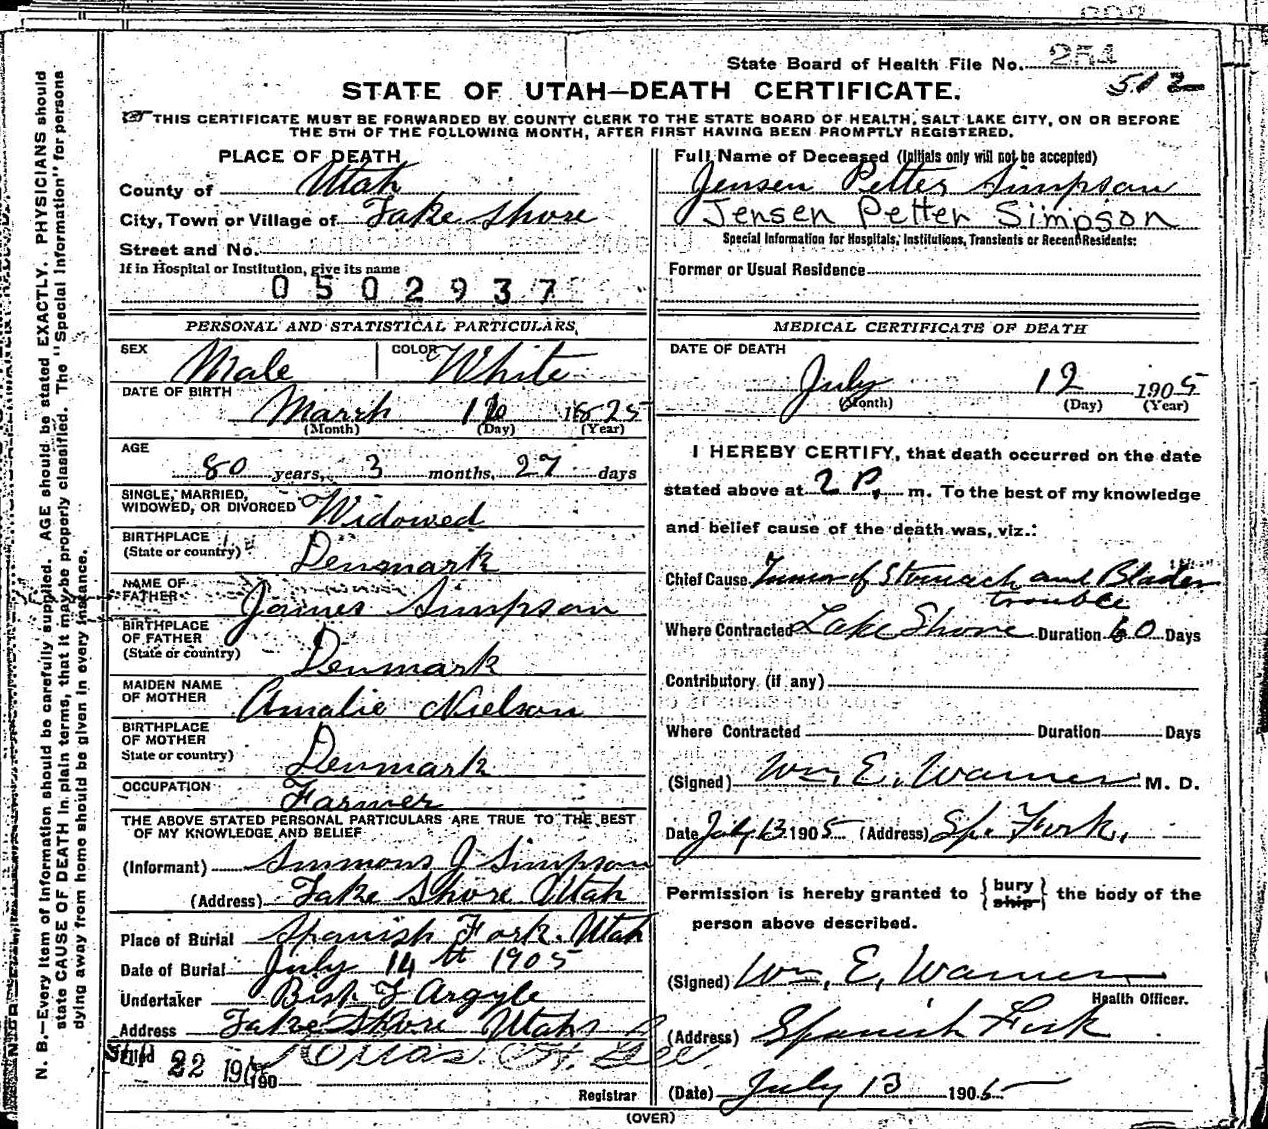 State Board of Health File No. 254
512
STATE OF UTAH—DEATH CERTIFICATE.
THIS CERTIFICATE MUST BE FORWARDED BY COUNTY CLERK TO THE STATE BOARD OF HEALTH, SALT LAKE CITY, ON OR BEFORE
THE 5TH OF THE FOLLOWING MONTH, AFTER FIRST HAVING BEEN PROMPTLY REGISTERED.
PLACE OF DEATH
County of Utah
City, Town or Village of Lake Shore
Street and No.
If in Hospital or Institution, give its name
0502937
Full Name of Deceased (Initials only will not be accepted)
Jensen Petter Simpson
Jensen Petter Simpson
Special Information for Hospitals, Institutions, Transients or Recent Residents:
Former or Usual Residence
PERSONAL AND STATISTICAL PARTICULARS,
SEX Male COLOR White
DATE OF BIRTH
March 1825
(Month) (Day) (Year)
AGE
80 years, 3 months, 27 days
SINGLE, MARRIED,
WIDOWED, OR DIVORCED Widowed
BIRTHPLACE
(State or country) Denmark
NAME OF
FATHER James Simpson
BIRTHPLACE
OF FATHER
(State or country) Denmark
MAIDEN NAME
OF MOTHER Amalie Nielson
BIRTHPLACE
OF MOTHER
State or country) Denmark
OCCUPATION Farmer
THE ABOVE STATED PERSONAL PARTICULARS ARE TRUE TO THE BEST
OF MY KNOWLEDGE AND BELIEF
(Informant) Simmons J Simpson
(Address) Lake Shore Utah
Place of Burial Spanish Fork. Utah
Date of Burial July 14th 1905
Undertaker Bish F Argyle
Address Lake Shore Utah
Filed 22 190
Registrar
MEDICAL CERTIFICATE OF DEATH
DATE OF DEATH
July 12 1905
(Month) (Day) (Year)
I HEREBY CERTIFY, that death occurred on the date
stated above at 2 P. m. To the best of my knowledge
and belief cause of the death was, viz.:
Chief Cause Tumor of Stomach and Blader
trouble
Where Contracted Lake Shore Duration 60 Days
Contributory (if any)
Where Contracted Duration Days
(Signed) Wm. E. Warner M. D.
Date July 13 1905 (Address) Sp. Fork.
Permission is hereby granted to {bury ship} the body of the
person above described.
(Signed) Wm. E. Warner
Health Officer.
(Address) Spanish Fork
(Date) July 13 1905
(OVER)
N. B.—Every item of information should be carefully supplied. AGE should be stated EXACTLY. PHYSICIANS should
state CAUSE OF DEATH in plain terms, that it may be properly classified. The "Special Information" for persons
dying away from home should be given in every instance.